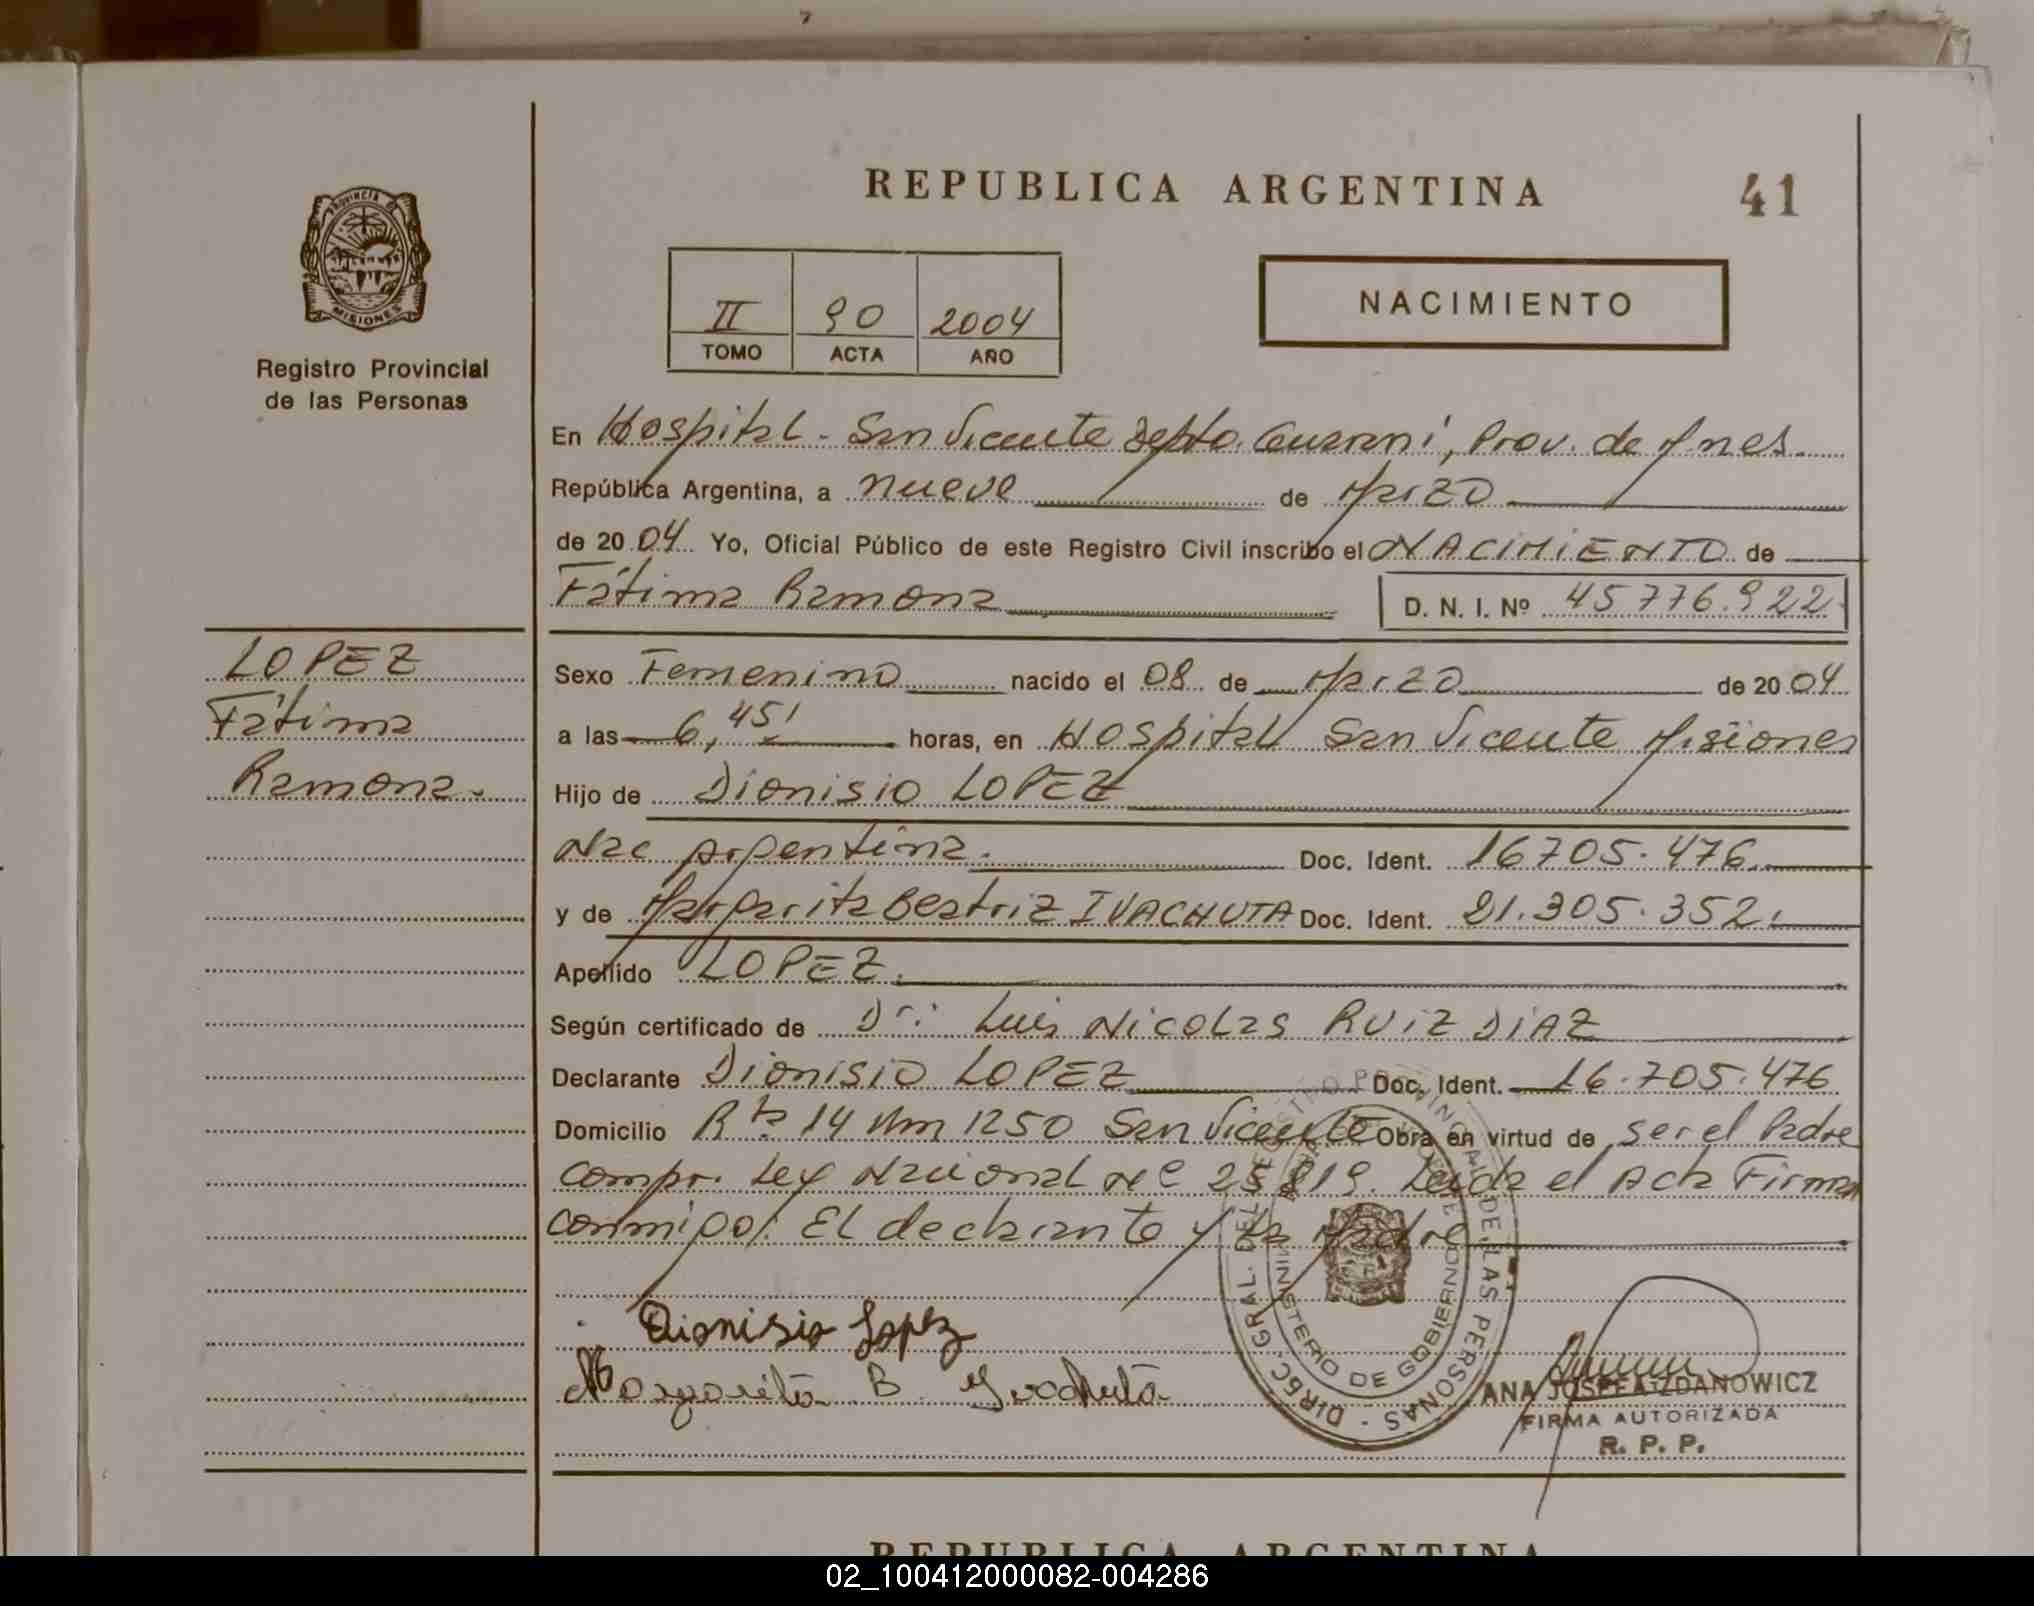 REPUBLICA ARGENTINA
41
PROVINCIA DE
MISIONES
Registro Provincial
de las Personas
II 90 2004
TOMO ACTA AÑO
NACIMIENTO
En Hospital - San Vicente Depto. Guaraní, Prov. de Mnes.
República Argentina, a nueve de Marzo
de 2004 Yo, Oficial Público de este Registro Civil inscribo el NACIMIENTO de
Fátima Ramona D. N. I. Nº 45776.922
LOPEZ
Fátima
Ramona.
Sexo Femenino nacido el 08 de Marzo de 2004
a las 6,45' horas, en Hospital San Vicente Misiones
Hijo de Dionisio LOPEZ
Nac Argentina. Doc. Ident. 16705.476
y de Margarita Beatriz IVACHUTA Doc. Ident. 21.305.352.
Apellido LOPEZ.
Según certificado de Dr. Luis Nicolas RUIZ DIAZ
Declarante Dionisio LOPEZ Doc. Ident. 16.705.476
Domicilio Rta 14 Km 1250 San Vicente Obra en virtud de ser el Padre
Compr. Ley Nacional Nº 25819. Leida el Acta Firman
conmigo: El declarante y la Madre
Dionisio Lopez
Margarita B. Ivachuta
DIREC. GRAL. DEL REGISTRO PROVINCIAL DE LAS PERSONAS
MINISTERIO DE GOBIERNO
ANA JOSEFA ZDANOWICZ
FIRMA AUTORIZADA
R. P. P.
REPUBLICA ARGENTINA
02_100412000082-004286